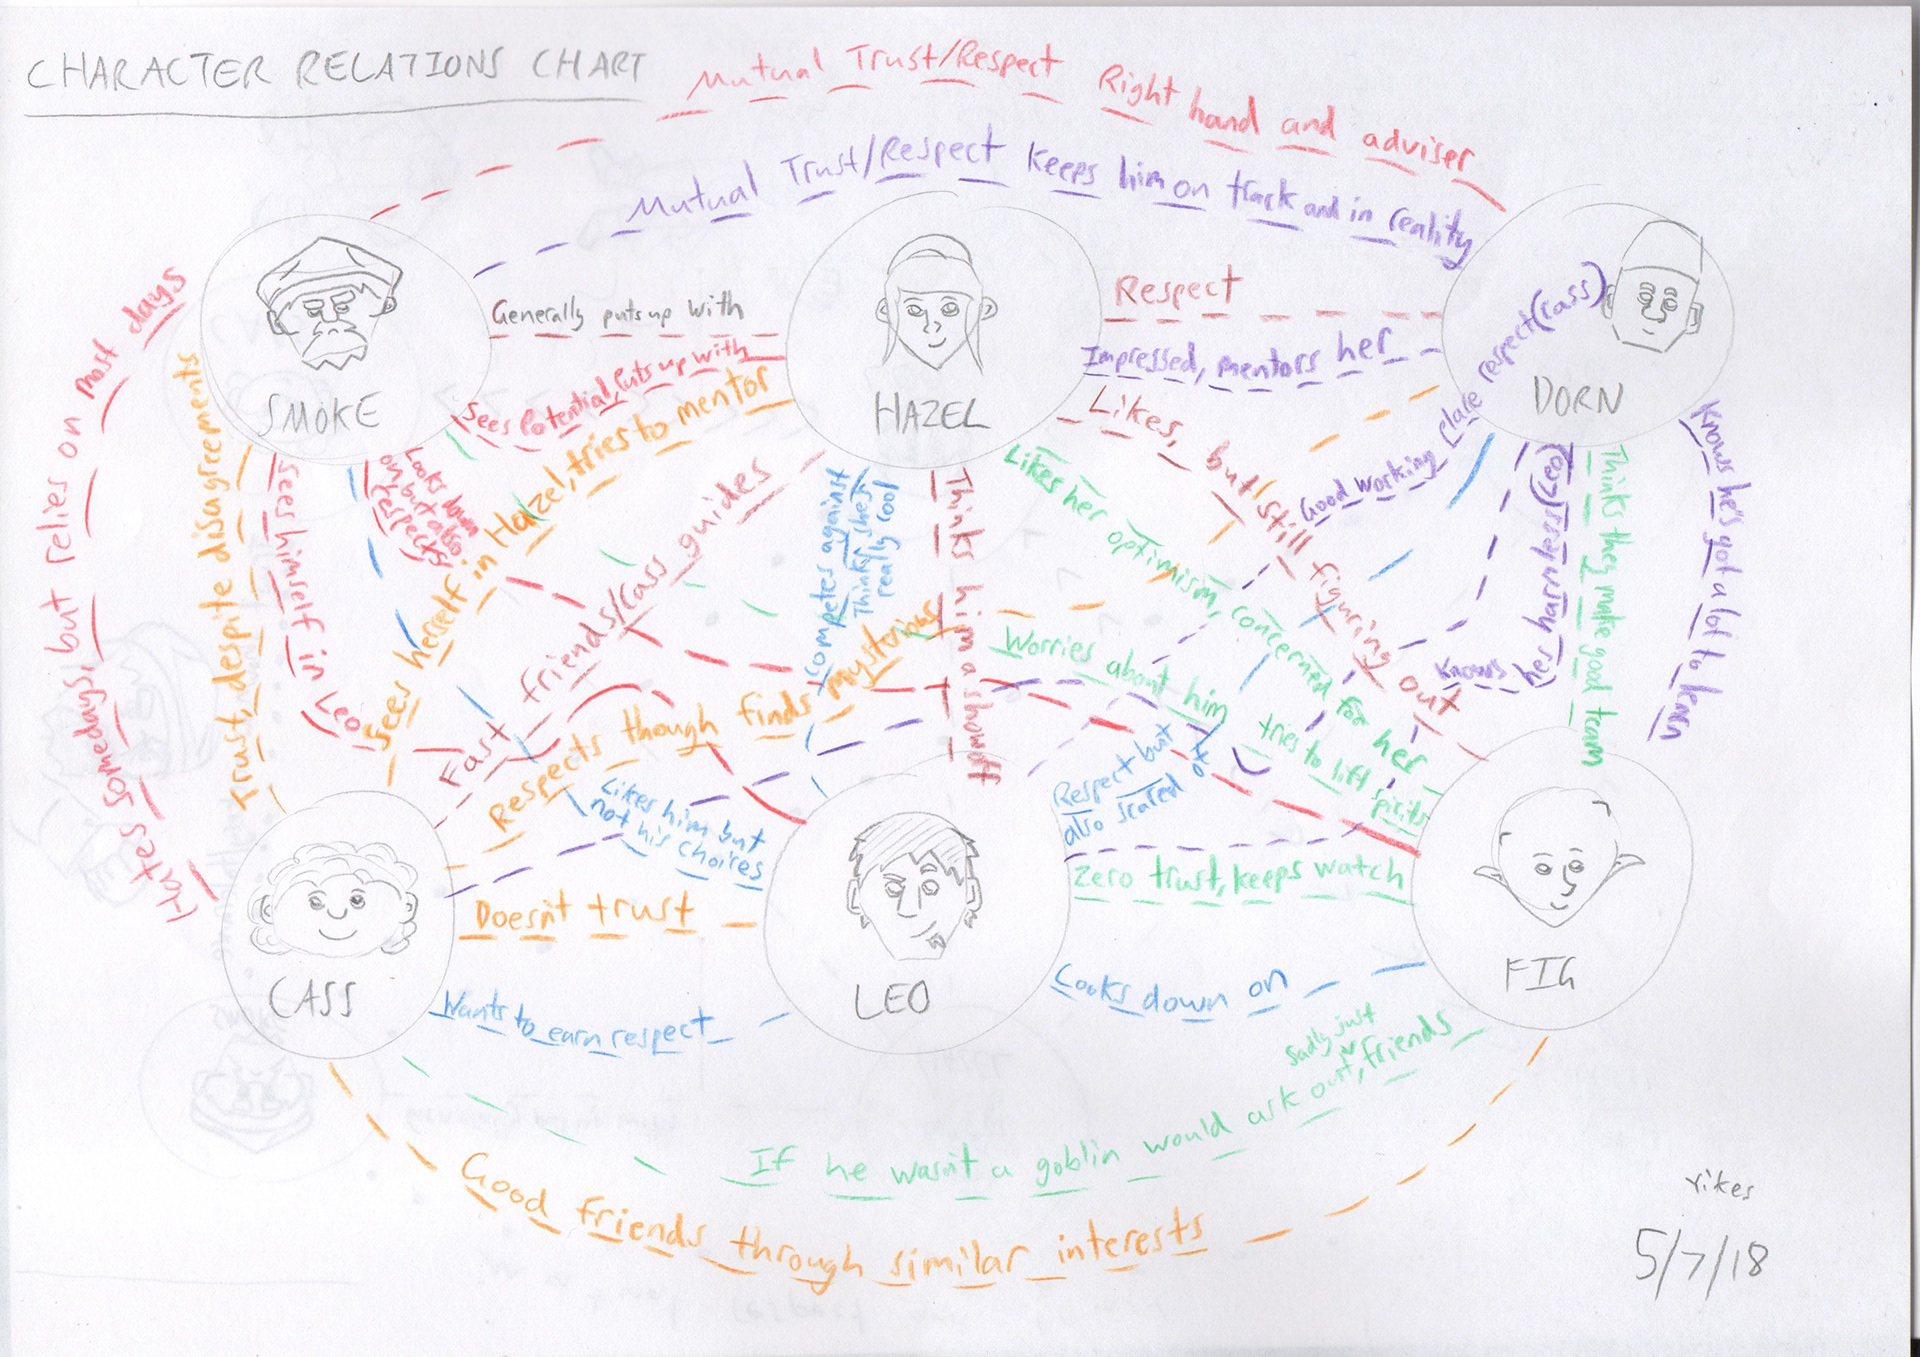 CHARACTER RELATIONS CHART
Mutual Trust/Respect Right hand and adviser
Mutual Trust/Respect Keeps him on track and in reality
SMOKE
HAZEL
DORN
Generally puts up with
Respect
Sees Potential, Puts up with
Impressed, mentors her
Sees herself in Hazel, tries to mentor
Likes, but still figuring out
Good working place respect (Cass)
Hates somedays, but relies on most days
Trust, despite disagreements
Sees himself in Leo
Looks down
on but also
respects
Fast friends/Cass guides
Competes against
Thinks shes
really cool
Thinks him a showoff
Likes her optimism, concerned for her
Worries about him
tries to lift
spirits
Knows her harmless (Leo)
Thinks they make good team
Knows he's got a lot to learn
Respects though finds mysterious
Likes him but
not his choices
Respect but
also scared of
CASS
LEO
FIG
Doesn't trust
Zero trust, keeps watch
Wants to earn respect
Looks down on
If he wasn't a goblin would ask out, sadly just friends
Good friends through similar interests
rikes
5/7/18